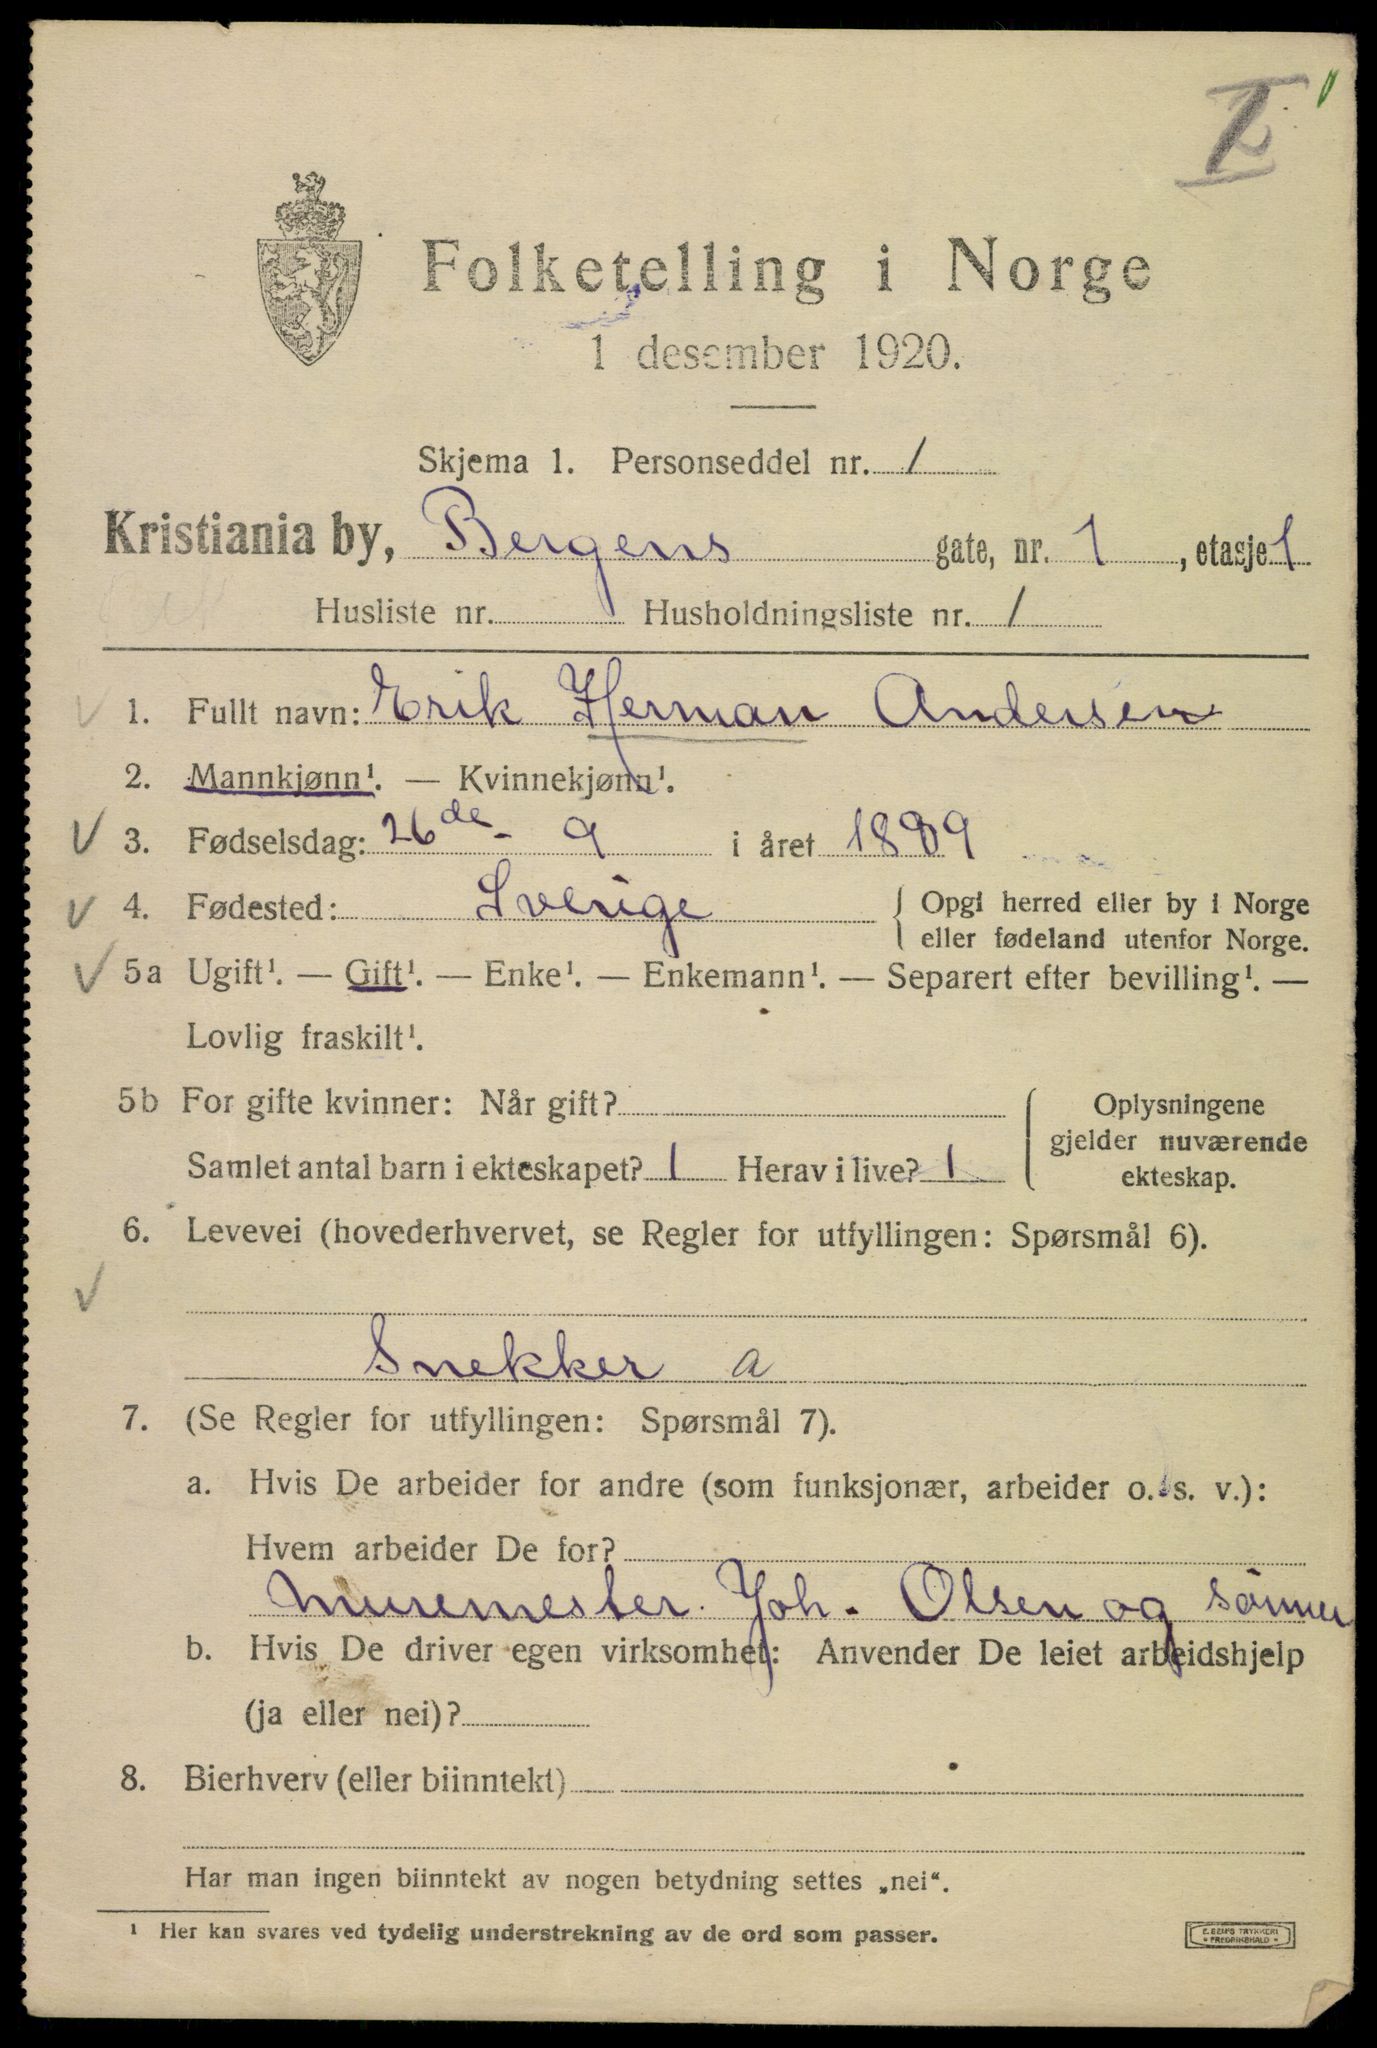 I
Folketelling i Norge
1 desember 1920.
Skjema 1. Personseddel nr. 1
Kristiania by, Bergens gate, nr. 1, etasje 1
Husliste nr. Husholdningsliste nr. 1
1. Fullt navn: Erik Herman Andersen
2. Mannkjønn¹. — Kvinnekjønn¹.
3. Fødselsdag: 26de- 9 i året 1889
4. Fødested: Sverige { Opgi herred eller by i Norge
eller fødeland utenfor Norge.
5a Ugift¹. — Gift¹. — Enke¹. — Enkemann¹. — Separert efter bevilling¹. —
Lovlig fraskilt¹.
5b For gifte kvinner: Når gift?
Samlet antal barn i ekteskapet? 1 Herav i live? 1
Oplysningene
gjelder nuværende
ekteskap.
6. Levevei (hovederhvervet, se Regler for utfyllingen: Spørsmål 6).
Snekker a
7. (Se Regler for utfyllingen: Spørsmål 7).
a. Hvis De arbeider for andre (som funksjonær, arbeider o. s. v.):
Hvem arbeider De for?
Muremester. Joh. Olsen og sönner
b. Hvis De driver egen virksomhet: Anvender De leiet arbeidshjelp
(ja eller nei)?
8. Bierhverv (eller biinntekt)
Har man ingen biinntekt av nogen betydning settes „nei“.
¹ Her kan svares ved tydelig understrekning av de ord som passer.
E. SEM'S TRYKKERI
• FREDRIKSHALD •